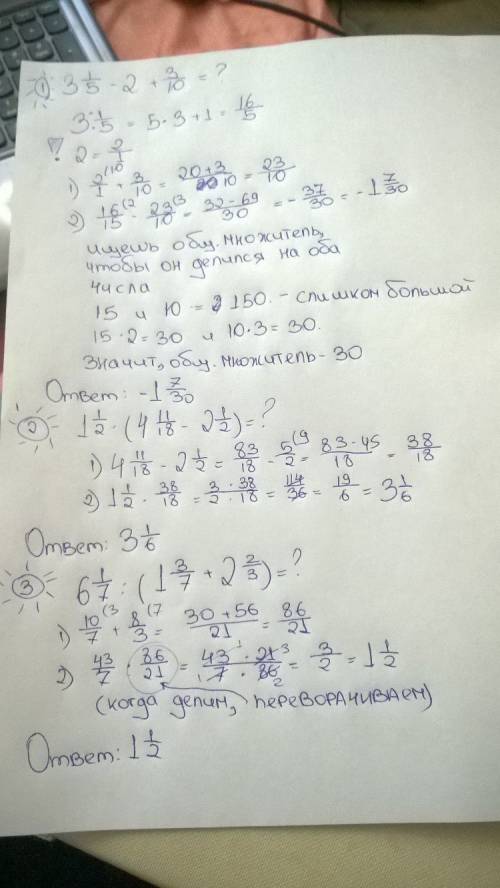 ① 3 1/5 - 2 + 3/10 = ?
3 1/5 = 5·3+1 = 16/5
! 2 = 2/1
1) 2/1 (10 + 3/10 = 20+3/10 = 23/10
2) 16/15 (2 - 23/10 (3 = 32-69/30 = - 37/30 = -1 7/30
ищешь общ. множитель,
чтобы он делился на оба
числа
15 и 10 = 150. - слишком большой
15·2=30 и 10·3=30.
Значит, общ. множитель - 30
Ответ: -1 7/30
② 1 1/2 · (4 11/18 - 2 1/2) = ?
1) 4 11/18 - 2 1/2 = 83/18 - 5/2 (9 = 83-45/18 = 38/18
2) 1 1/2 · 38/18 = 3·38/2·18 = 114/36 = 19/6 = 3 1/6
Ответ: 3 1/6
③ 6 1/7 : (1 3/7 + 2 2/3) = ?
1) 10/7 (3 + 8/3 (7 = 30+56/21 = 86/21
2) 43/7 · 86/21 = 43 1 · 21 3/1 7 · 86 2 = 3/2 = 1 1/2
(когда делим, переворачиваем)
Ответ: 1 1/2